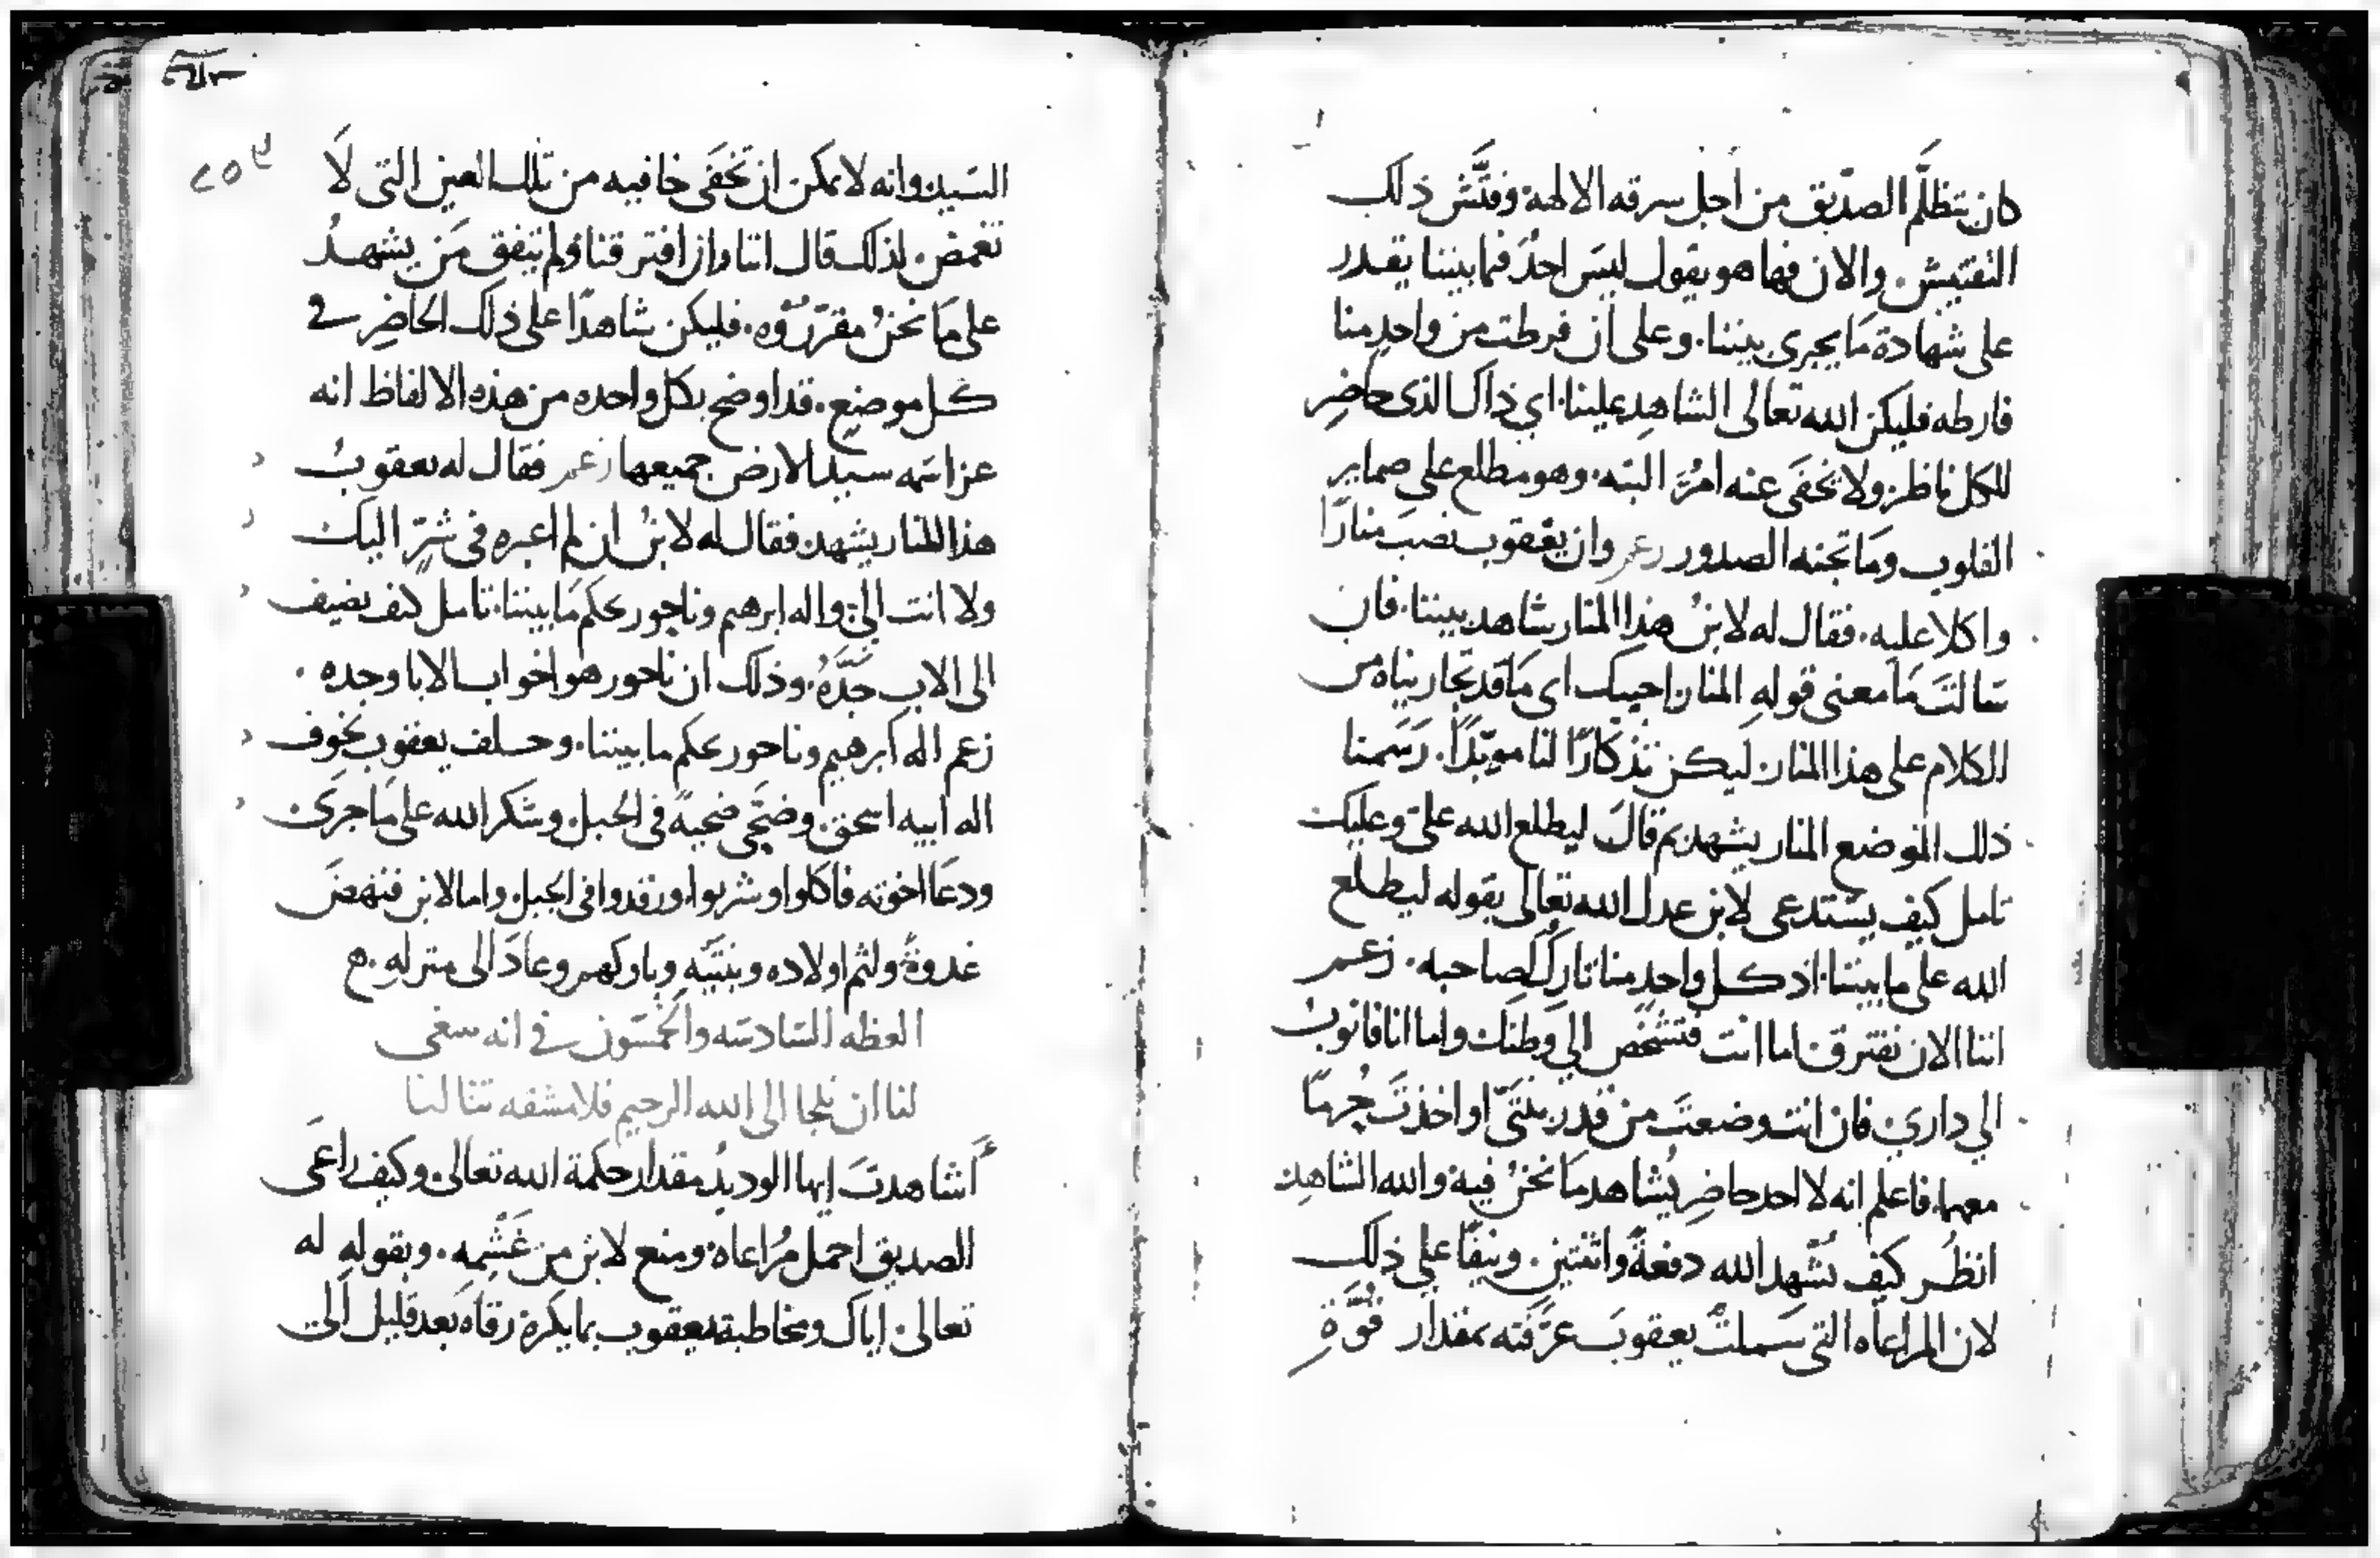 كان يتظلّم الصدّيق من أجل سرقه الالهة وفتَّش ذلك
التفتيش. والان فها هو يقول ليسَ احدٌ فيما بيننا يقدر
على شهادة مَا يجرى بيننا. وعلى ان فرطت من واحدٍ منا
فارطه فليكن الله تعالى الشاهد علينا. اي ذاك الذى حاضِر
للكل ناظر ولا يخفَى عنه امرٌ البتّه. وهو مطلع على ضماير
القلوب ومَا تجنه الصدور زعم وان يعقوب نصبَ منارًا
واكلا عليه. فقال له لابنُ هذا المنار شاهد بيننا. فان
سَالتَ مَا معنى قولهِ المنار اجيبك اى مَا قد تجارَيناه من
الكلام على هذا المنار ليكن تذكارًا لنا موبّدًا. رَسَمنا
ذلك الموضع المنار يشهد ثم قالَ ليطلع الله عليّ وعليك
تامل كيف يسْتدعى لابن عدل الله تعالى بقوله ليطلع
الله على ما بيننا. اذ كل واحدٍ منا تاركٌ لصاحبه. زعم
اننا الان نفترق اما انت فتشخص الي وطنك واما انا فاتوب
الي داري فان انت وضعتَ من قدر بنتَيّ او اخذتَ حُرمًا
معهما. فاعلم انه لا احد حاضِر يُشاهد مَا نحنُ فيه والله الشاهد
انظُر كيف يُشهد الله دفعةً واثنتين. وينفًا على ذلك
لان المراعاه التى شملتْ يعقوبَ عرّفته بمقدار قوَّةِ
٢٥٩
السَيد وانه لا يمكن ان تخفَى خافيه من تلك العين التى لَا
تغمض. لذلك قال اننا وان افترقنا ولم يتفق مَن يشهدُ
على مَا نحنُ مقرّرُوه. فليكن شاهدًا على ذلك الحاضِر في
كل موضع. قد اوضح بكل واحده من هذه الالفاظ انه
عز اسَمه سيد الارض جميعها زعم فقال له يعقوبُ
هذا المنار يشهد. فقال له لابنُ ان لم اعبره فى شرّ اليك
ولا انت اليّ واله ابرهيم وناحور يحكم مَا بيننا. تامل كيف يضيف
الى الاب جَدَّهُ. وذلك ان ناحور هو اخو اب الابا وجده.
زعم اله ابرهيم وناحور يحكم ما بيننا. وحلف يعقوب بخوف
اله ابيه اسحق. وضحَّى ضحيةً فى الجبل وشكر الله على مَا جرَى
ودعَا اخوته فاكلوا وشربوا ورقدوا فى الجبل. واما لابن فنهضَ
غدوةً ولثم اولاده وبنتَيْه وباركهم وعادَ الى منزله.
العظه السَادسَه والخمسَون في انه ينبغى
لنا ان نلجا الى الله الرحيم فلا مشقه تنالنا
أشاهدتَ ايها الوديدُ مقدار حكمة الله تعالى وكيف راعَى
الصديق اجمل مُراعاه ومنع لابن من غَشْمِه. وبقوله له
تعالى اياك ومخاطبة يعقوب بما يكره رقاه بَعد قليل الى